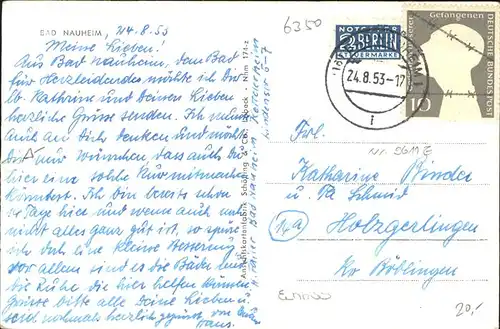 BAD NAUHEIM, 24.8.53
Meine Lieben!
Aus Bad Nauheim, dem Bad
für Herzleidende möchte ich Dir
lb. Kathrine und Deinen Lieben
herzliche Grüsse senden. Ich muß
auch an Dich denken und möchte
Dir nur wünschen, dass auch Du
hier eine solche Kur mitmachen
könntest. Ich bin bereits schon
Tage hier und wenn auch noch
nicht alles ganz gut ist, so spüre
ich doch eine kleine Besserung
vor allem sind es die Bäder und
die Ruhe die hier helfen können.
Grüsse bitte alle Deine Lieben u.
sei nochmals herzlich gegrüsst, von
Hans.
Bad Nauheim
Lindenstr. 5-7
Ansichtskartenfabrik Schöning & Co., Lübeck · Nhm 174-z
6350
NOTOPFER
2 BERLIN
STEUERMARKE
24.8.53-17
i
Gefangenen
DEUTSCHE BUNDESPOST
10
Frl.
Nr. 9611 E
Katharine Binder
u. Pa Schmid
(14a)
Holzgerlingen
Kr Böblingen
20,-